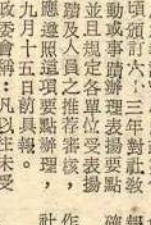 頃頒訂六十三年對社教
動或事蹟辦理表揚要點
並且規定各單位受表揚
蹟及人員之推荐審核，
應遵照這項要點辦理，
九月十五日前具報。
政委會稱：凡以往未受
報
確
作
社